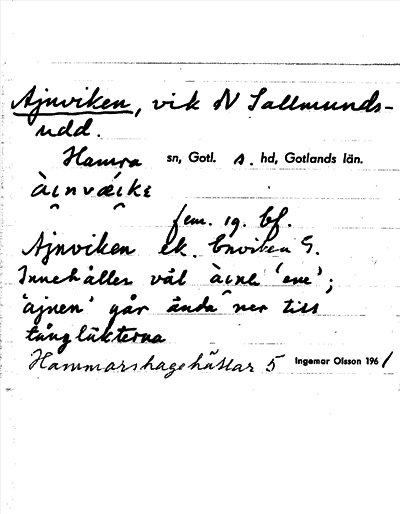 Ajnviken, vik N Sallmunds-
udd.
Hamra sn, Gotl. s. hd, Gotlands län.
ài̯nvǽi̯kɛ
fem. sg. bf.
Ajnviken ek. Enviken G.
Innehåller väl ài̯nɛ 'ene';
'ajnen' går ända ner till
tångläkterna
Hammarshagehällar 5 Ingemar Olsson 1961